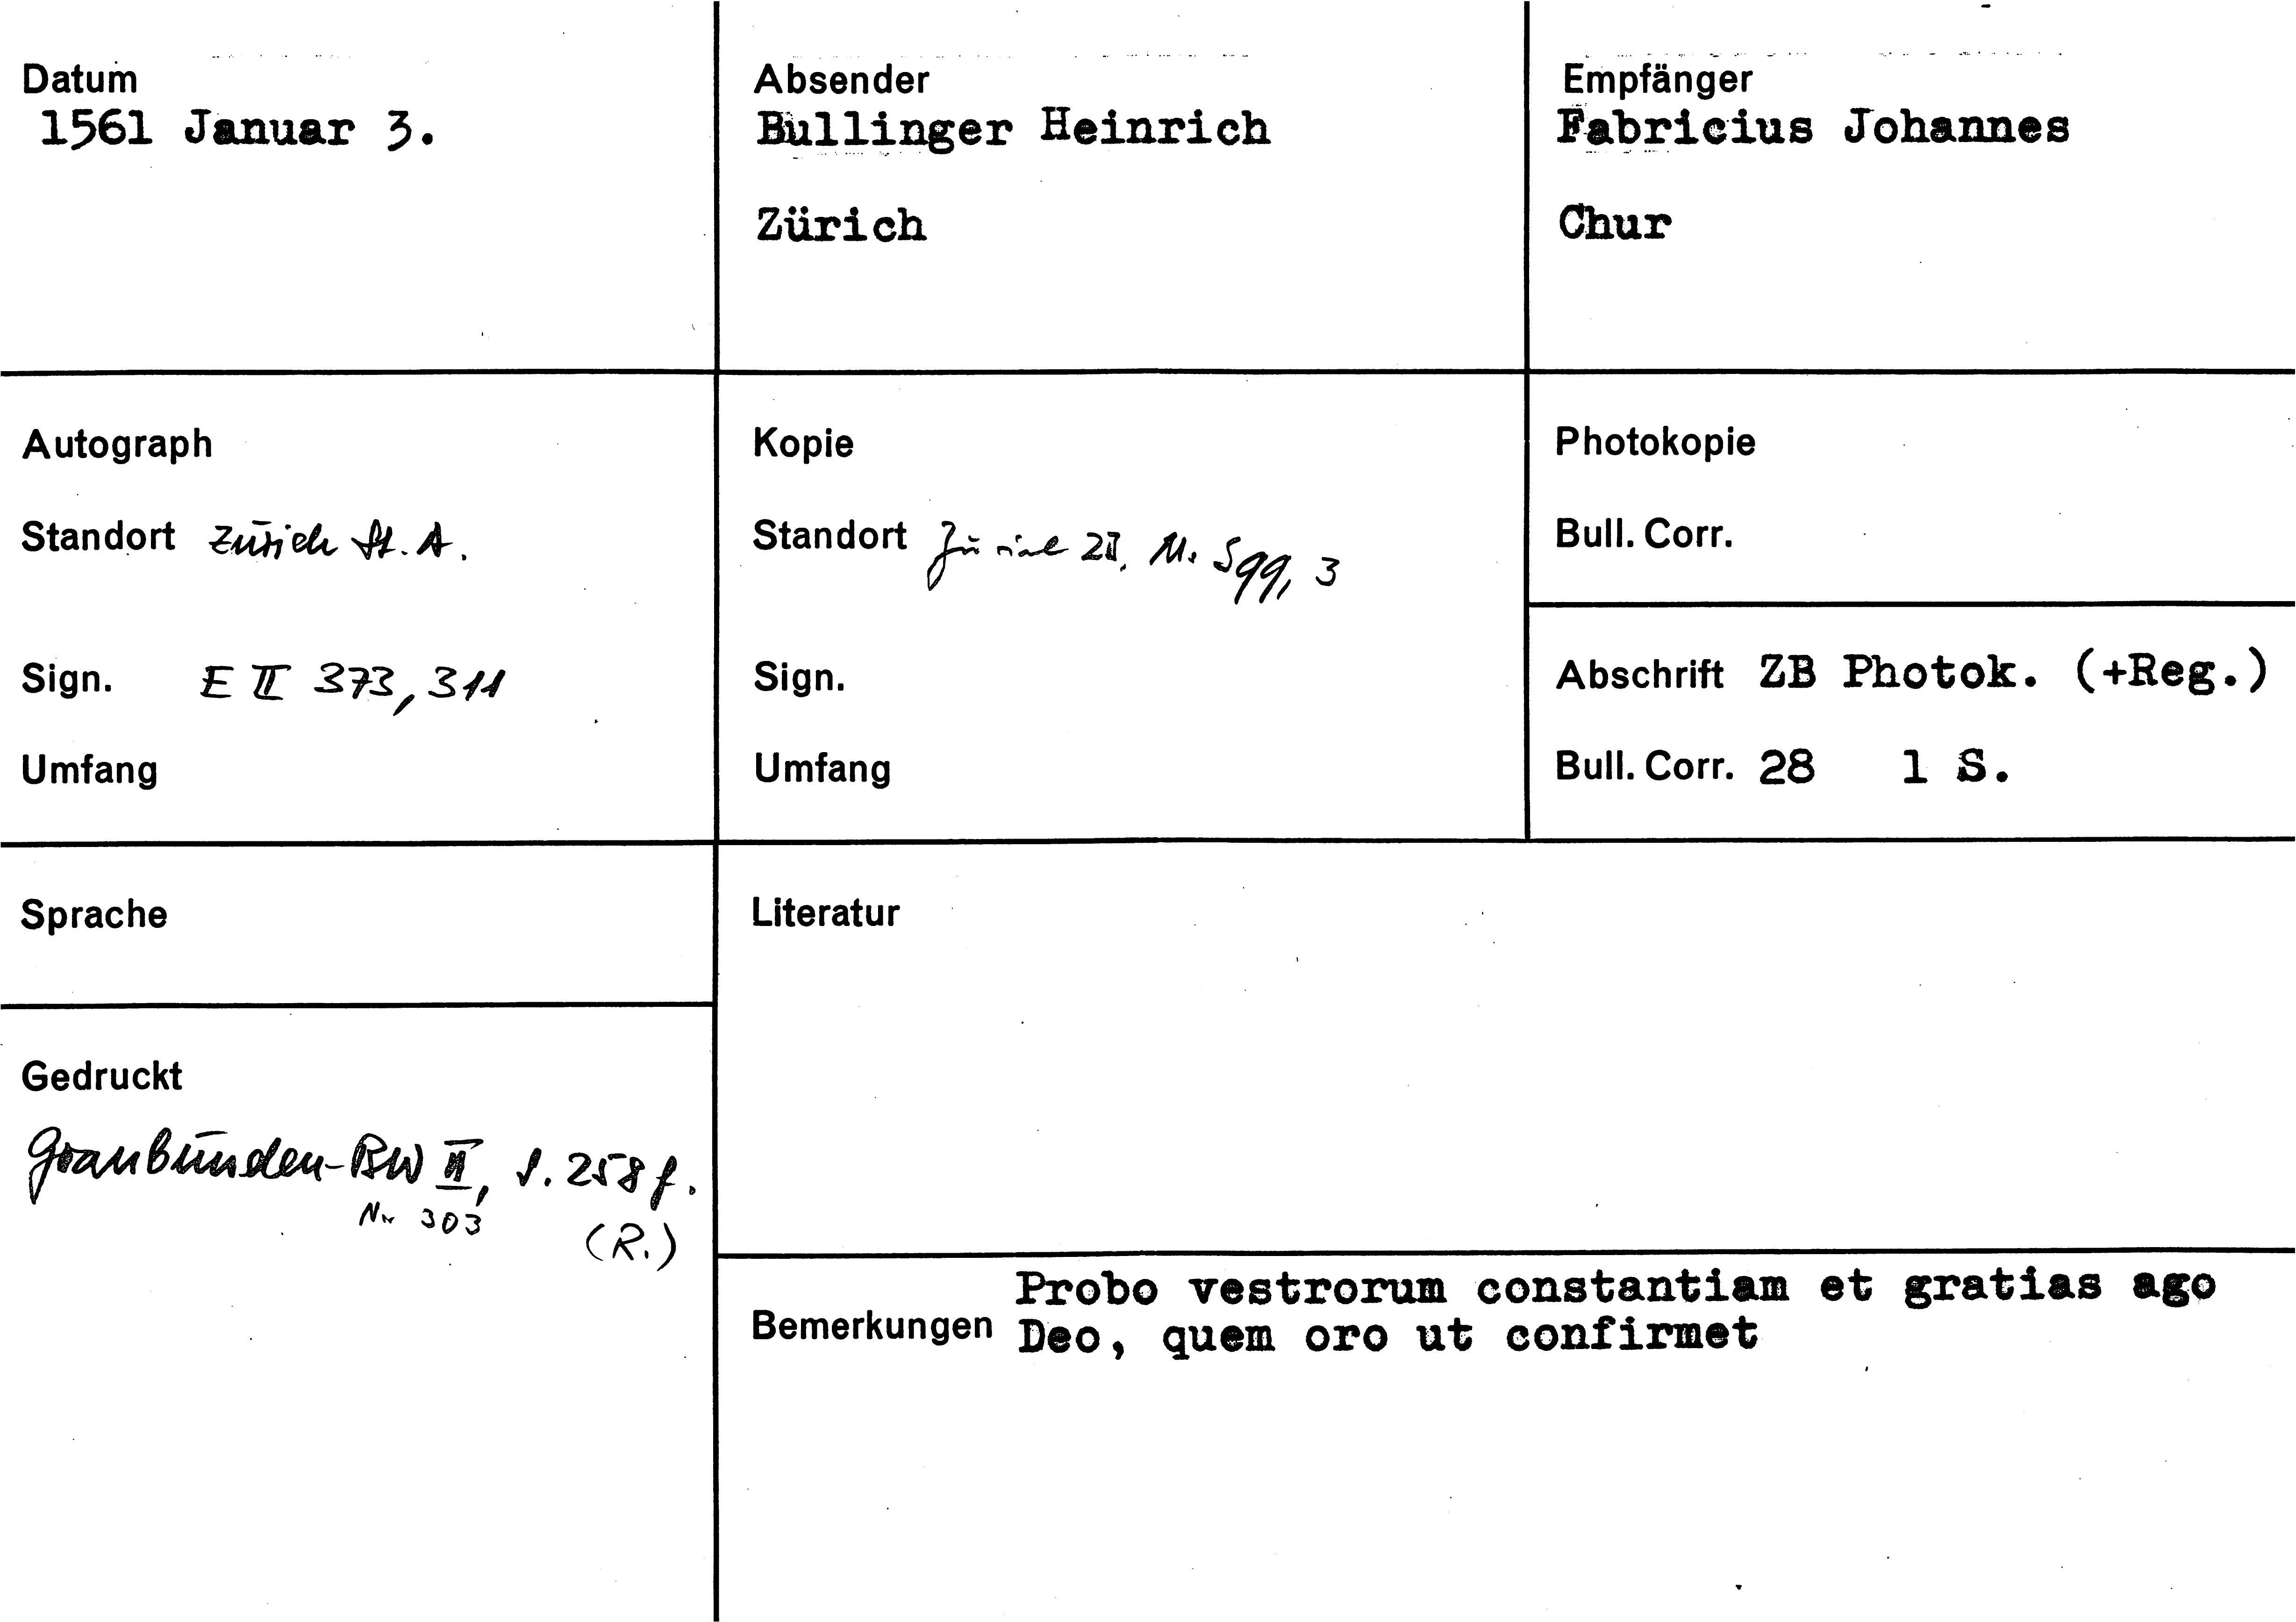 Datum
1561 Januar 3.
Absender
Bullinger Heinrich
Zürich
Empfänger
Fabricius Johannes
Chur
Autograph
Standort Zürich St. A.
Sign. E II 373, 311
Umfang
Kopie
Standort Zürich ZB, Ms S 99, 3
Sign.
Umfang
Photokopie
Bull. Corr.
Abschrift ZB Photok. (+Reg.)
Bull. Corr. 28 1 S.
Sprache
Literatur
Gedruckt
Graubünden-BW II, S. 258 f.
Nr 303
(R.)
Bemerkungen Probo vestrorum constantiam et gratias ago
Deo, quem oro ut confirmet